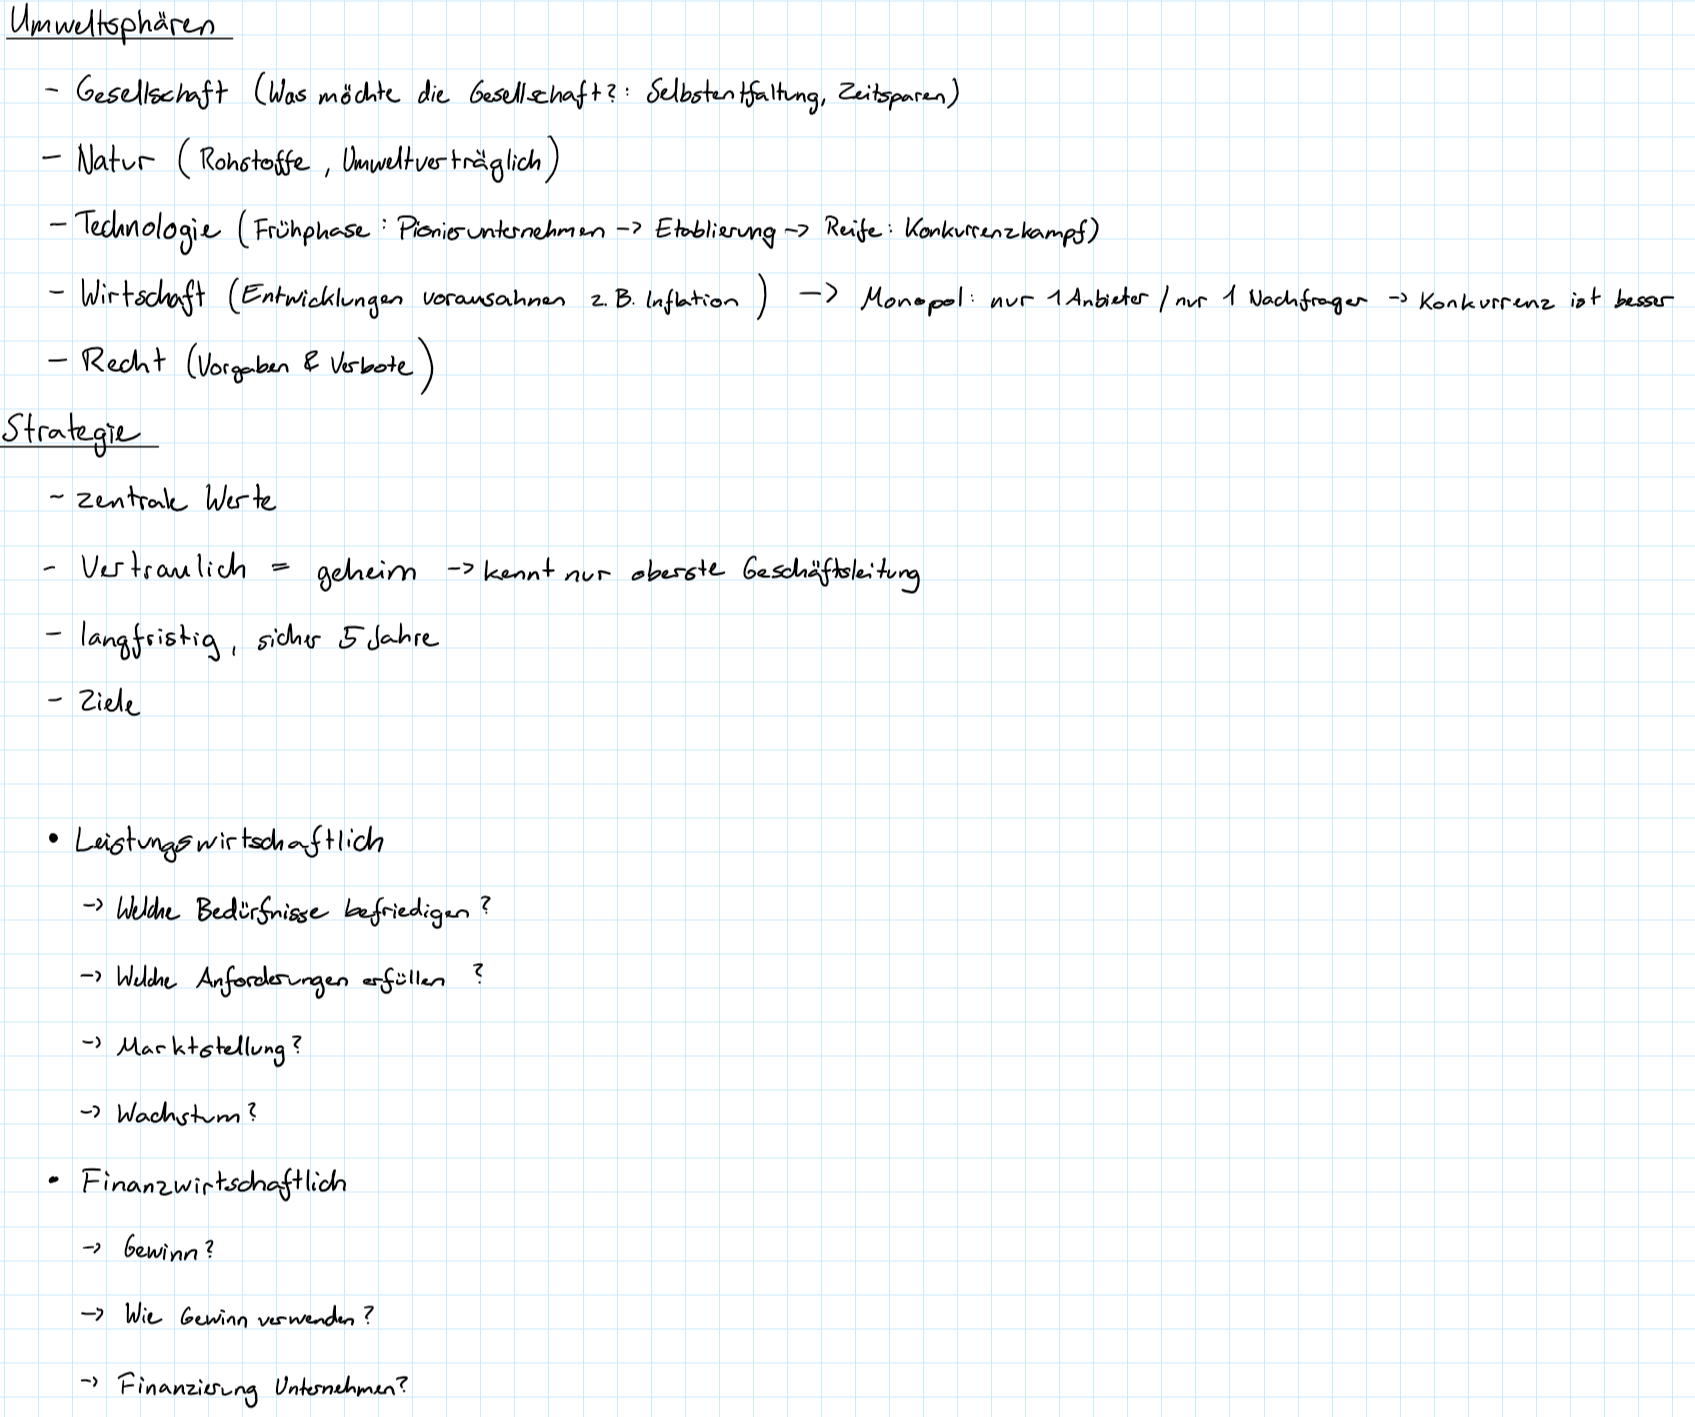 Umweltsphären
- Gesellschaft (Was möchte die Gesellschaft?: Selbstentfaltung, Zeitsparen)
- Natur (Rohstoffe, Umweltverträglich)
- Technologie (Frühphase: Pionierunternehmen -> Etablierung -> Reife: Konkurrenzkampf)
- Wirtschaft (Entwicklungen vorausahnen z.B. Inflation) -> Monopol: nur 1 Anbieter / nur 1 Nachfrager -> Konkurrenz ist besser
- Recht (Vorgaben & Verbote)
Strategie
- zentrale Werte
- Vertraulich = geheim -> kennt nur oberste Geschäftsleitung
- langfristig, sicher 5 Jahre
- Ziele
• Leistungswirtschaftlich
-> Welche Bedürfnisse befriedigen?
-> Welche Anforderungen erfüllen?
-> Marktstellung?
-> Wachstum?
• Finanzwirtschaftlich
-> Gewinn?
-> Wie Gewinn verwenden?
-> Finanzierung Unternehmen?